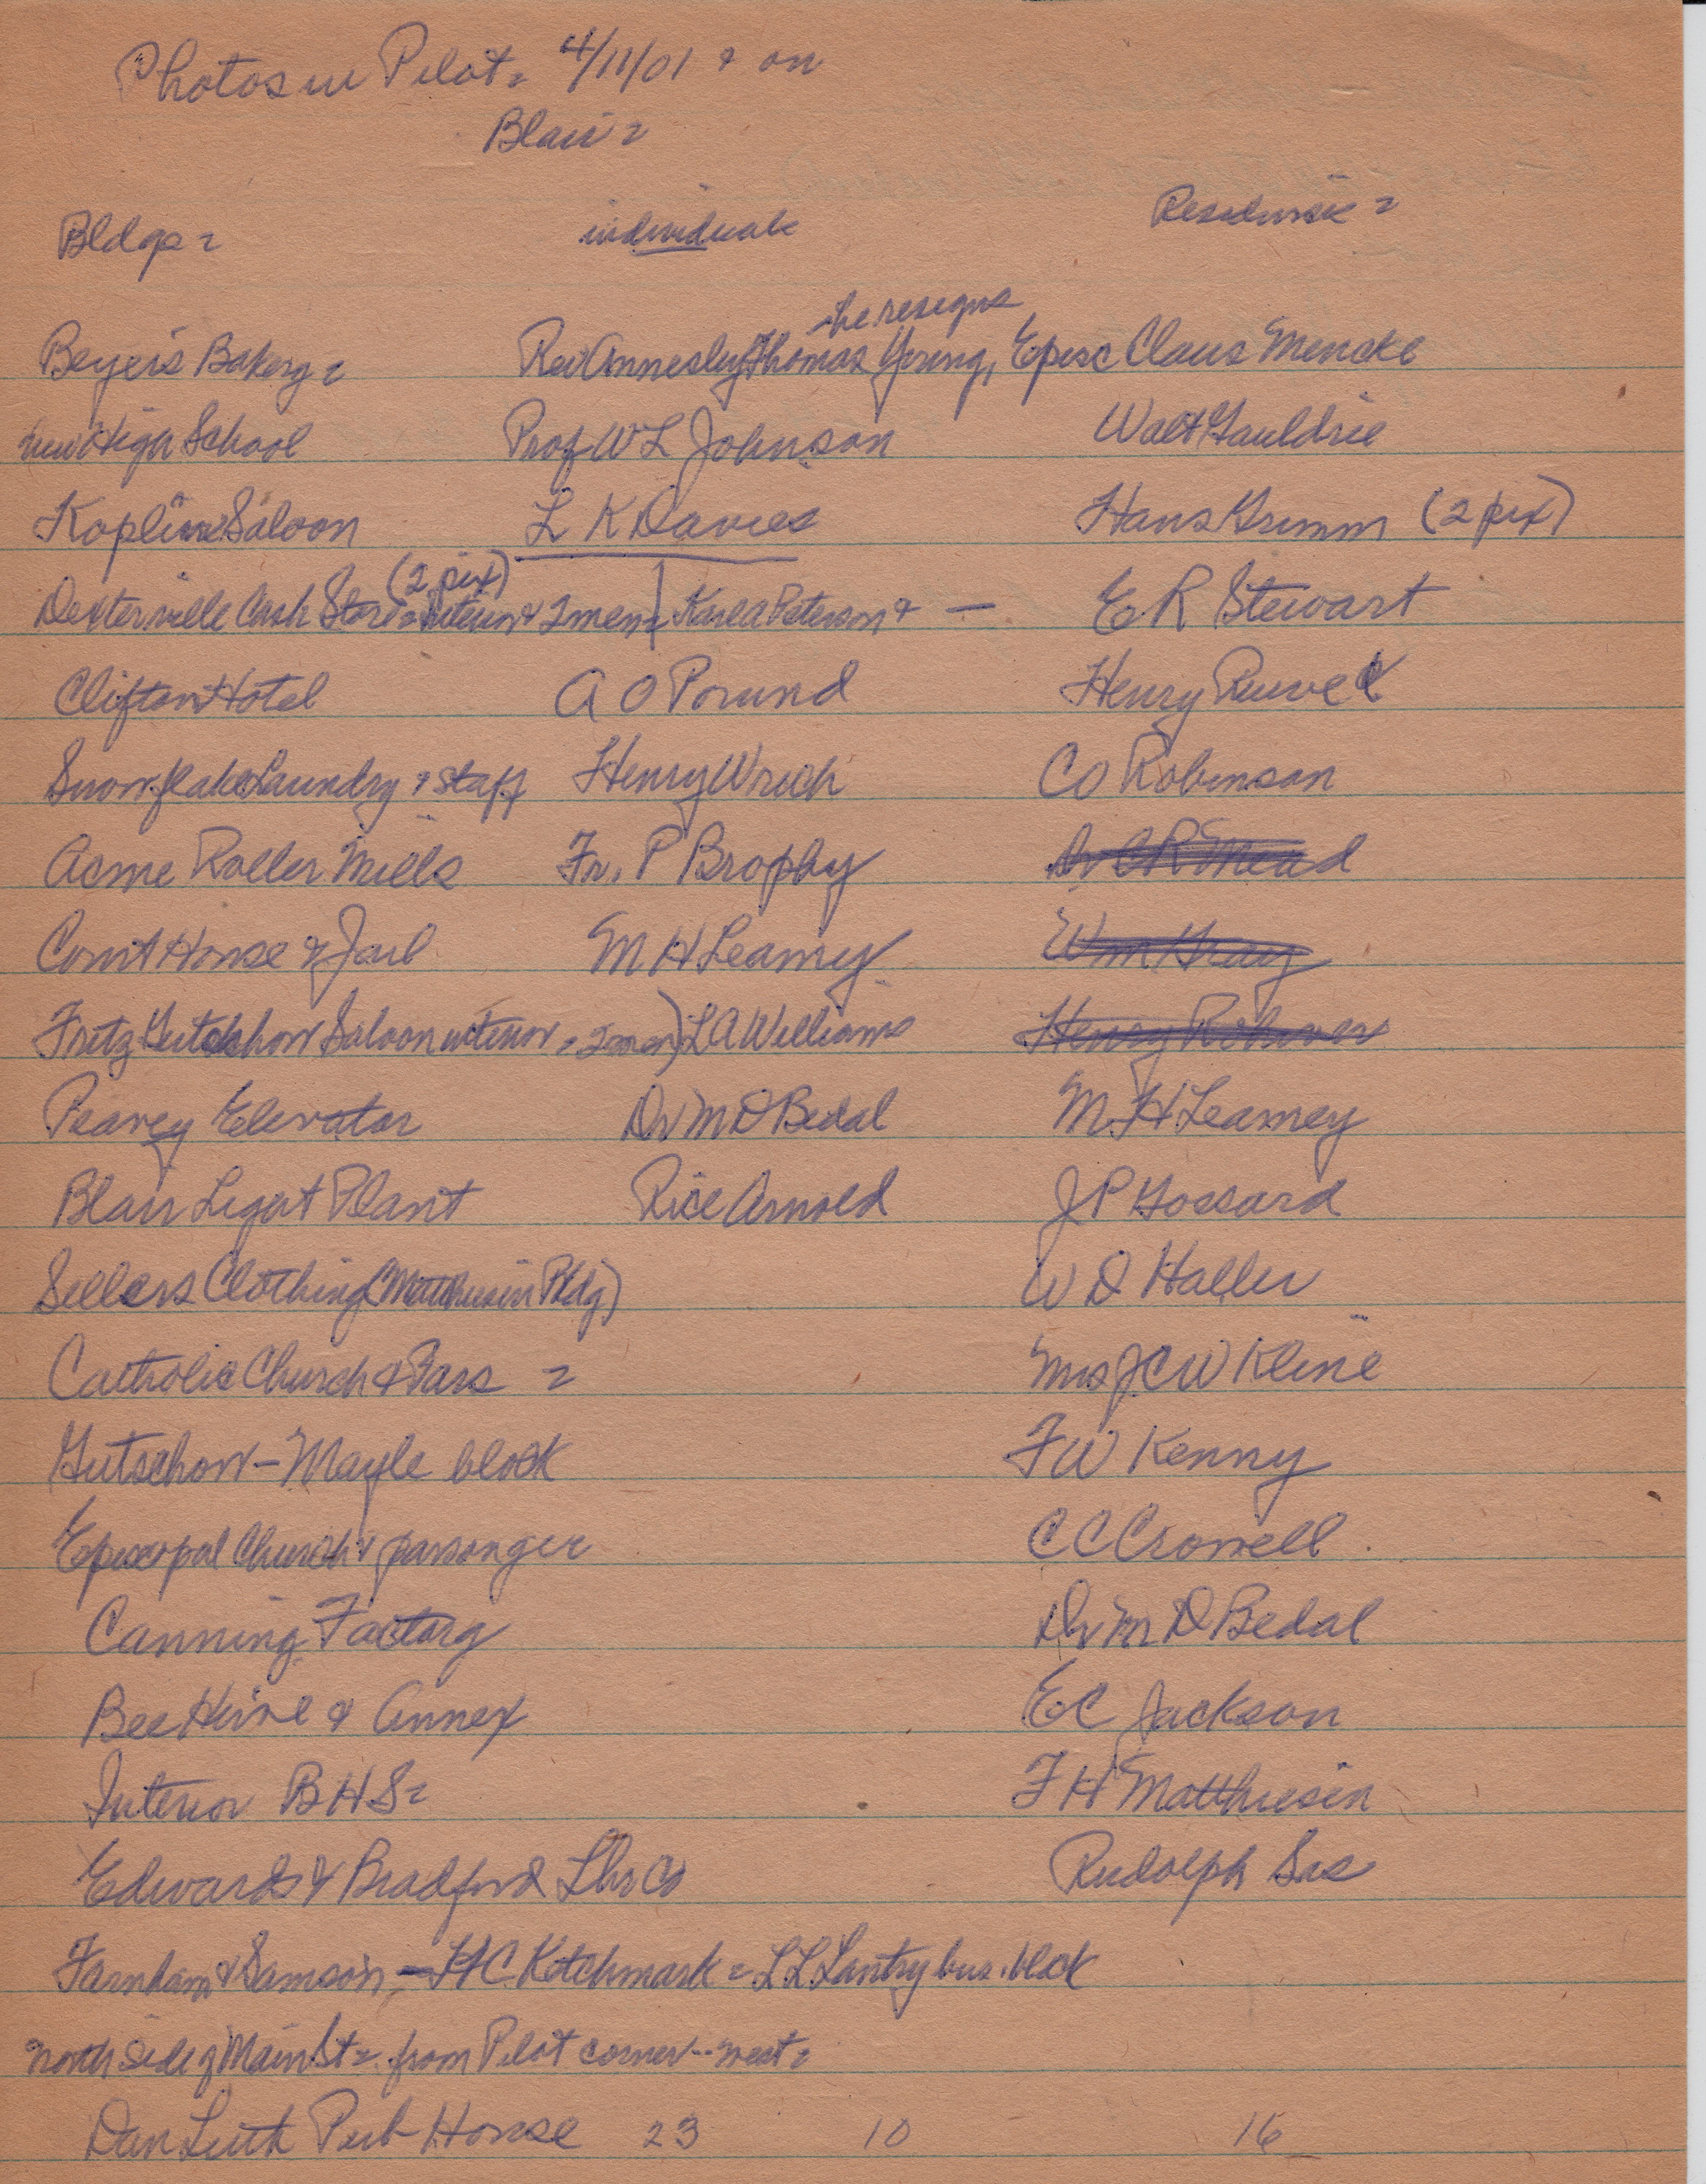 Photos in Pilot = 4/11/01 & on
Blair =
Bldgs = individuals Residences =
he resigns
Beyers Bakery = Rev Annesley Thomas Young, Episc Claus Mencke
new High School Prof W L Johnson Walt Gauldrie
Kopline Saloon L K Davies Hans Grimm (2 pix)
(2 pix)
Dexterville Cash Store = interior & 2 men = Karl A Peterson & — E R Stewart
Clifton Hotel A O Pound Henry
Snowflake Laundry & staff Henry Wrich C O Robinson
Acme Roller Mills Fr. P Brophy Dr C R Mead
Court House & Jail M H Leamy Wm Gray
Fritz Gutschow Saloon interior = 2 men) L A Williams Henry Rohwer
Peavey Elevator Dr M D Bedal M H Leamey
Blair Light Plant Rice Arnold J P Gossard
Sellers Clothing (Matthiesen Bldg) W D Haller
Catholic Church & Pars = Mrs J C W Kline
Gutschow - Mayle block F W Kenny
Episcopal Church & parsonger C C Crowell
Canning Factory Dr M D Bedal
Bee Hive & Annex E C Jackson
Interior B H S = F H Matthiesen
Edwards & Bradford Lbr Co Rudolph Sas
Farnham & Samson - H C Ketchmark = L L Lantry bus. block
north side of Main St = from Pilot corner -- west =
Dan Luth Pub House 23 10 16